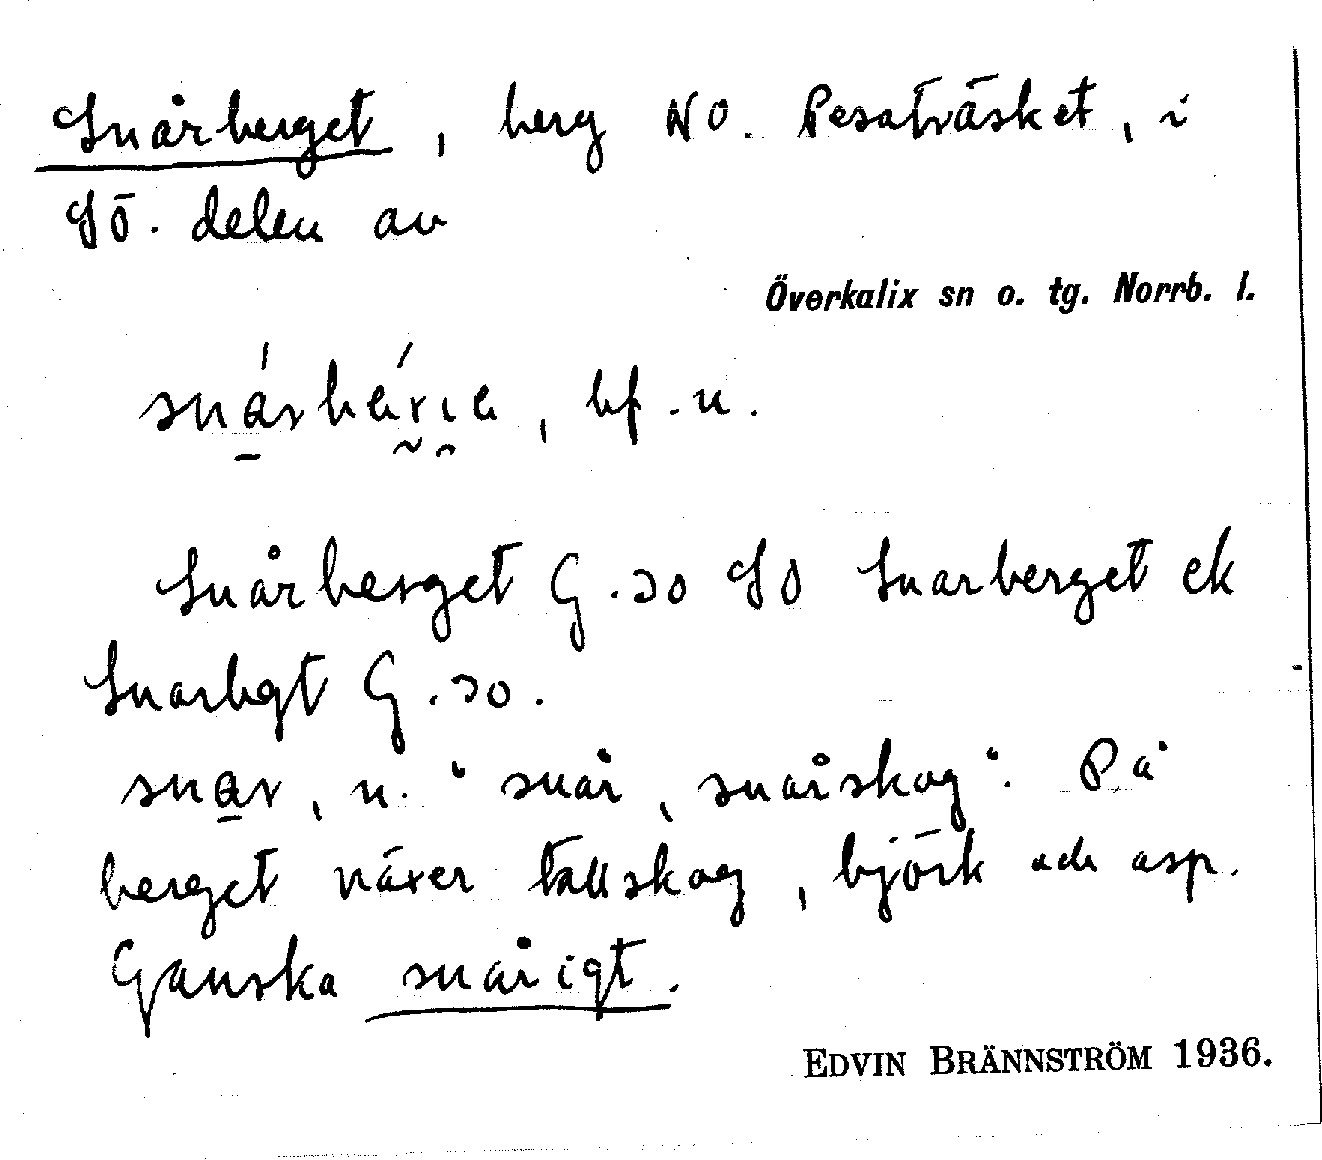 Snårberget, berg NO. Pesaträsket, i
SÖ. delen av
Överkalix sn o. tg. Norrb. l.
snárbérıe, bf. n.
Snårberget G.30 SO Snarberget ek
Snarbgt G.30.
snar, n. "snår, snårskog". På
berget växer tallskog, björk och asp.
Ganska snårigt.
EDVIN BRÄNNSTRÖM 1936.